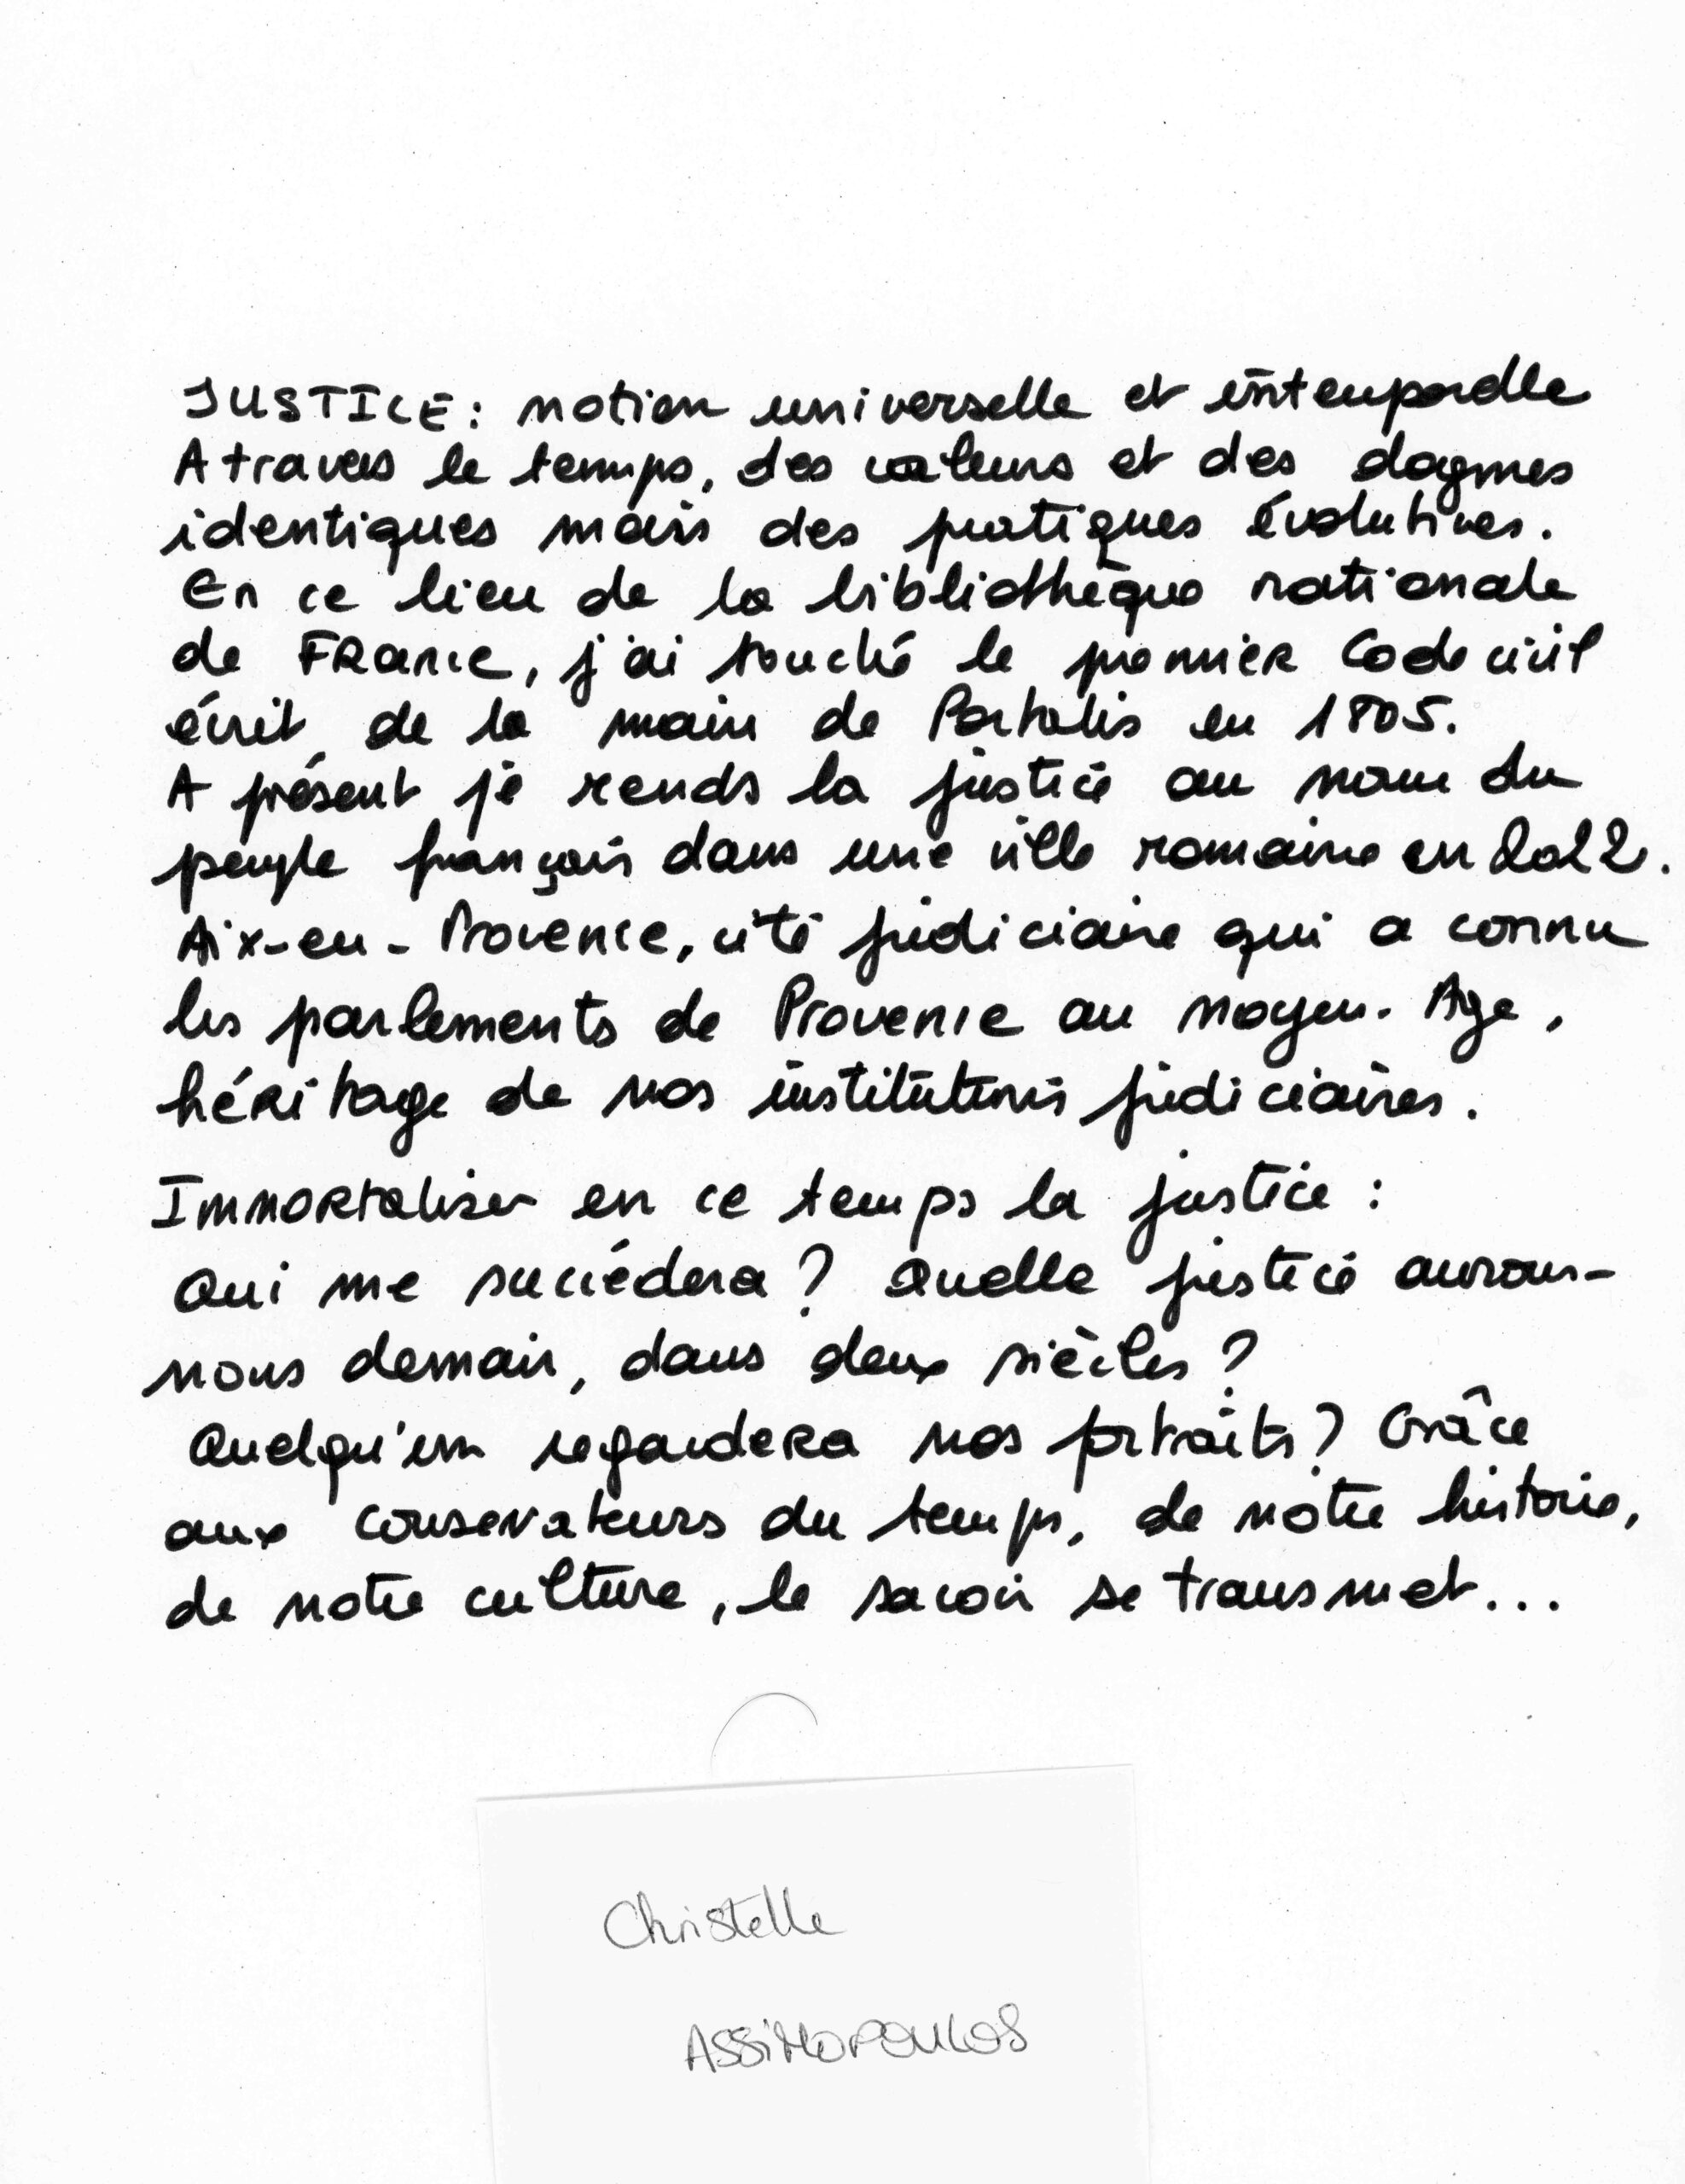 JUSTICE : notion universelle et intemporelle
A travers le temps, des valeurs et des dogmes
identiques mais des pratiques évolutives.
En ce lieu de la bibliothèque nationale
de FRance, j'ai touché le premier Code civil
écrit de la main de Portalis en 1805.
A présent je rends la justice au nom du
peuple français dans une ville romaine en 2022.
Aix-en-Provence, cité judiciaire qui a connu
les parlements de Provence au Moyen-Age,
héritage de nos institutions judiciaires.
Immortaliser en ce temps la justice :
Qui me succédera ? Quelle justice aurons-
nous demain, dans deux siècles ?
Quelqu'un regardera nos portraits ? Grâce
aux conservateurs du temps, de notre histoire,
de notre culture, le savoir se transmet...
Christelle
ASSiMOPOULOS